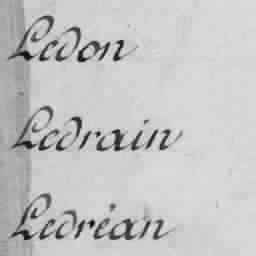 Ledon
Ledrain
Ledréan